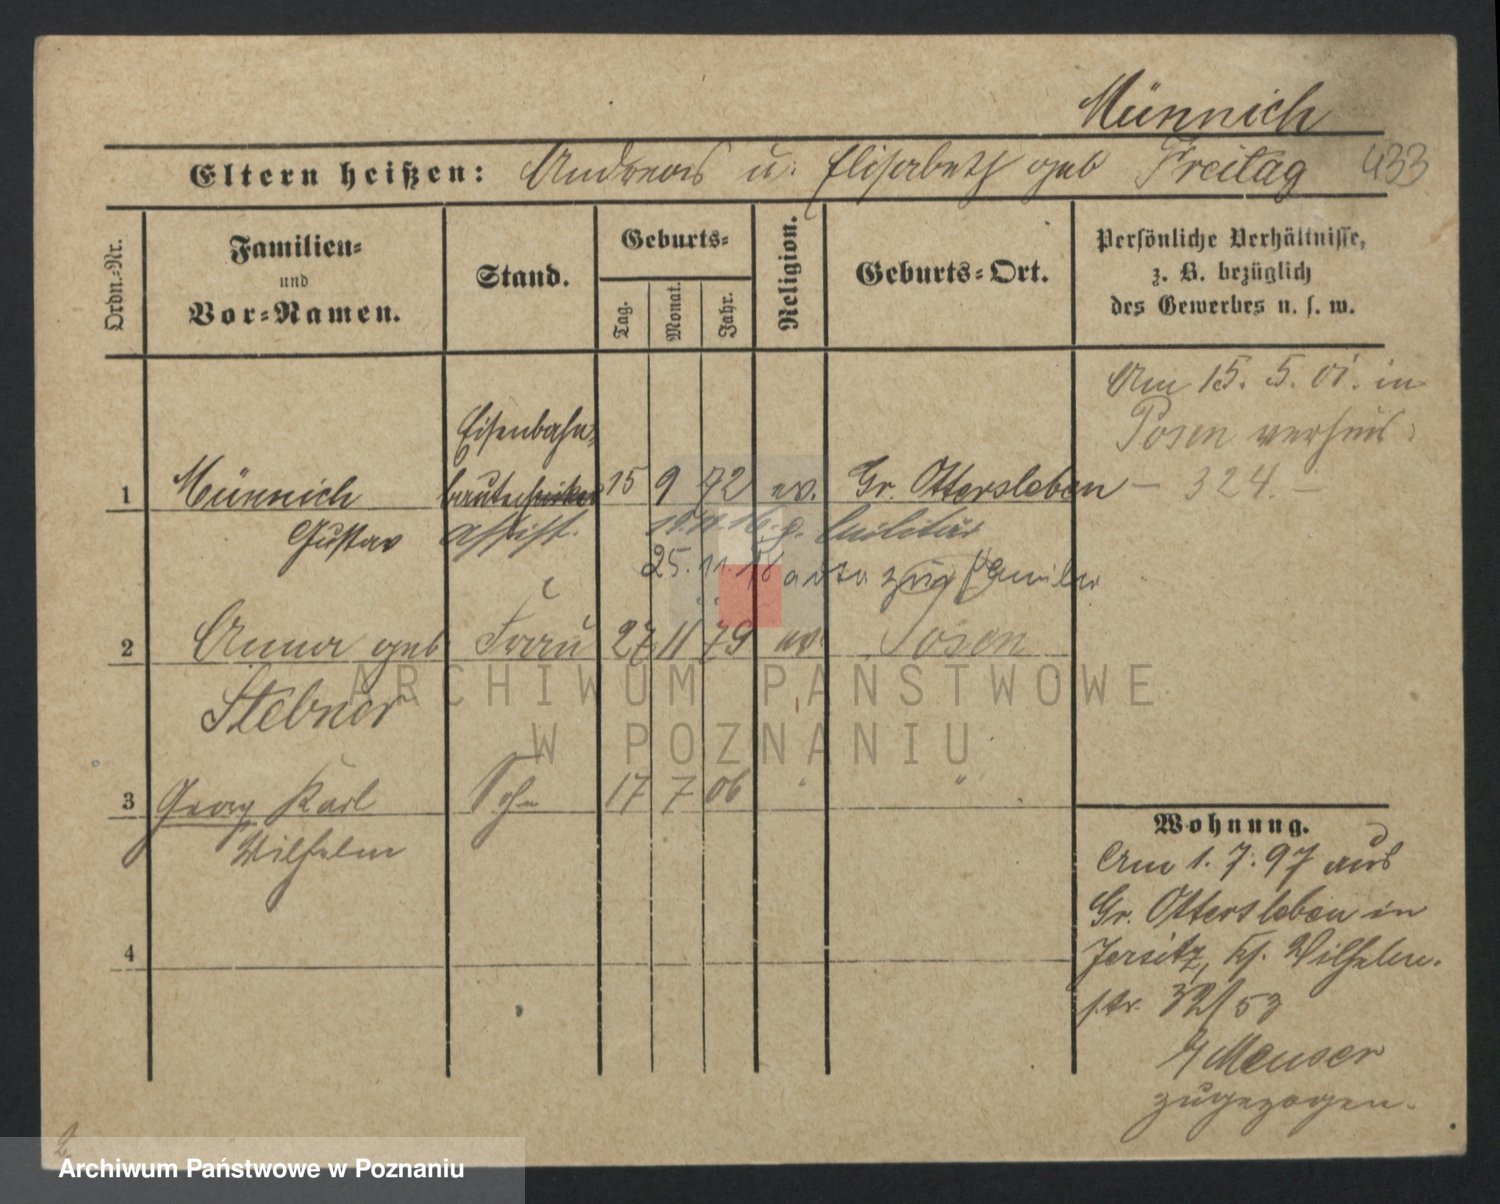 Münnich
Eltern heißen: Andreas u. Elisabeth geb Freitag 433
Ordn.-Nr.
Familien- und Vor-Namen.
Stand.
Geburts-
Tag. Monat. Jahr.
Religion.
Geburts-Ort.
Persönliche Verhältnisse,
z. B. bezüglich
des Gewerbes u. s. w.
Am 15. 5. 01. in
Posen verheir.
– 324. –
Eisenbahn-
1 Münnich bautechniker 15 9 72 ev. Gr. Ottersleben
Gustav Assist. Militär
25. 11. 18 zug Familie
2 Anna geb Frau 27 11 79 ev. Posen
Stebner
3 Georg Karl Sohn 17 7 06 " "
Wilhelm
4
Wohnung.
Am 1. 7. 97 aus
Gr. Ottersleben in
Jersitz, Ks. Wilhelm-
str. 32/53
b/ Meuser
zugezogen.
2
ARCHIWUM PAŃSTWOWE
W POZNANIU
Archiwum Państwowe w Poznaniu